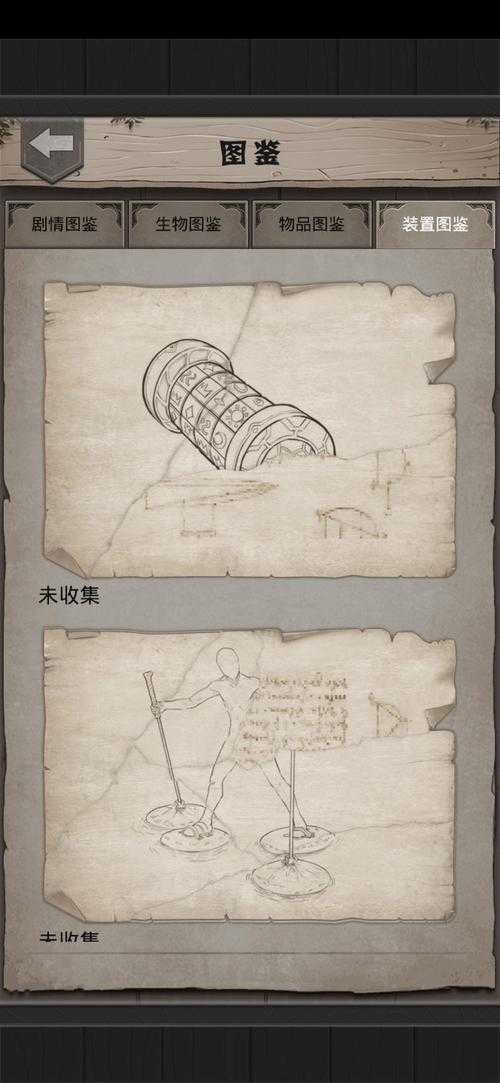 图鉴
剧情图鉴
生物图鉴
物品图鉴
装置图鉴
未收集
未收集